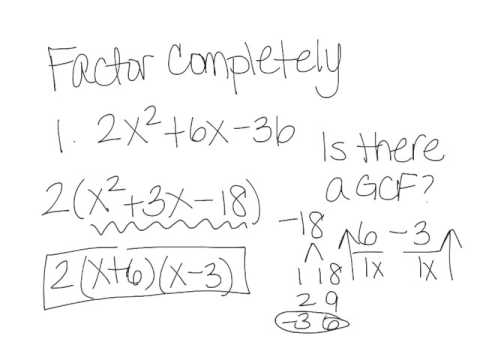 Factor completely
1. 2x²+6x-36
2(x²+3x-18)
2(x+6)(x-3)
Is there
a GCF?
-18
1 18
2 9
-3 6
6 -3
1x 1x